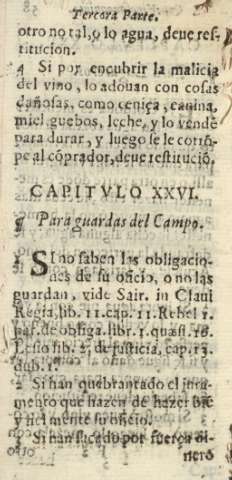 Tercera Parte.
otro no tal, o lo agua, deue res-
titucion.
4 Si por encubrir la malicia
del vino, lo adouan con cosas
dañosas, como ceniça, canina,
miel, guebos, leche, y lo vende
para durar, y luego se le corrō-
pe al cōprador, deue restituciō.
CAPITVLO XXVI.
¶ Para guardas del Campo.
1 SI no saben las obligacio-
nes de su oficio, o no las
guardan, vide Sair. in Claui
Regia, lib. 11. cap. 11. Rebel 1.
par. de obliga. libr. 1. quæst. 18.
Lesio lib. 2. de justicia, cap. 13.
dub. 1.
2 Si han quebrantado el jura-
mento que hazen de hazer biē
y fielmente su oficio.
3 Si han sacado por fuerça di-
nero